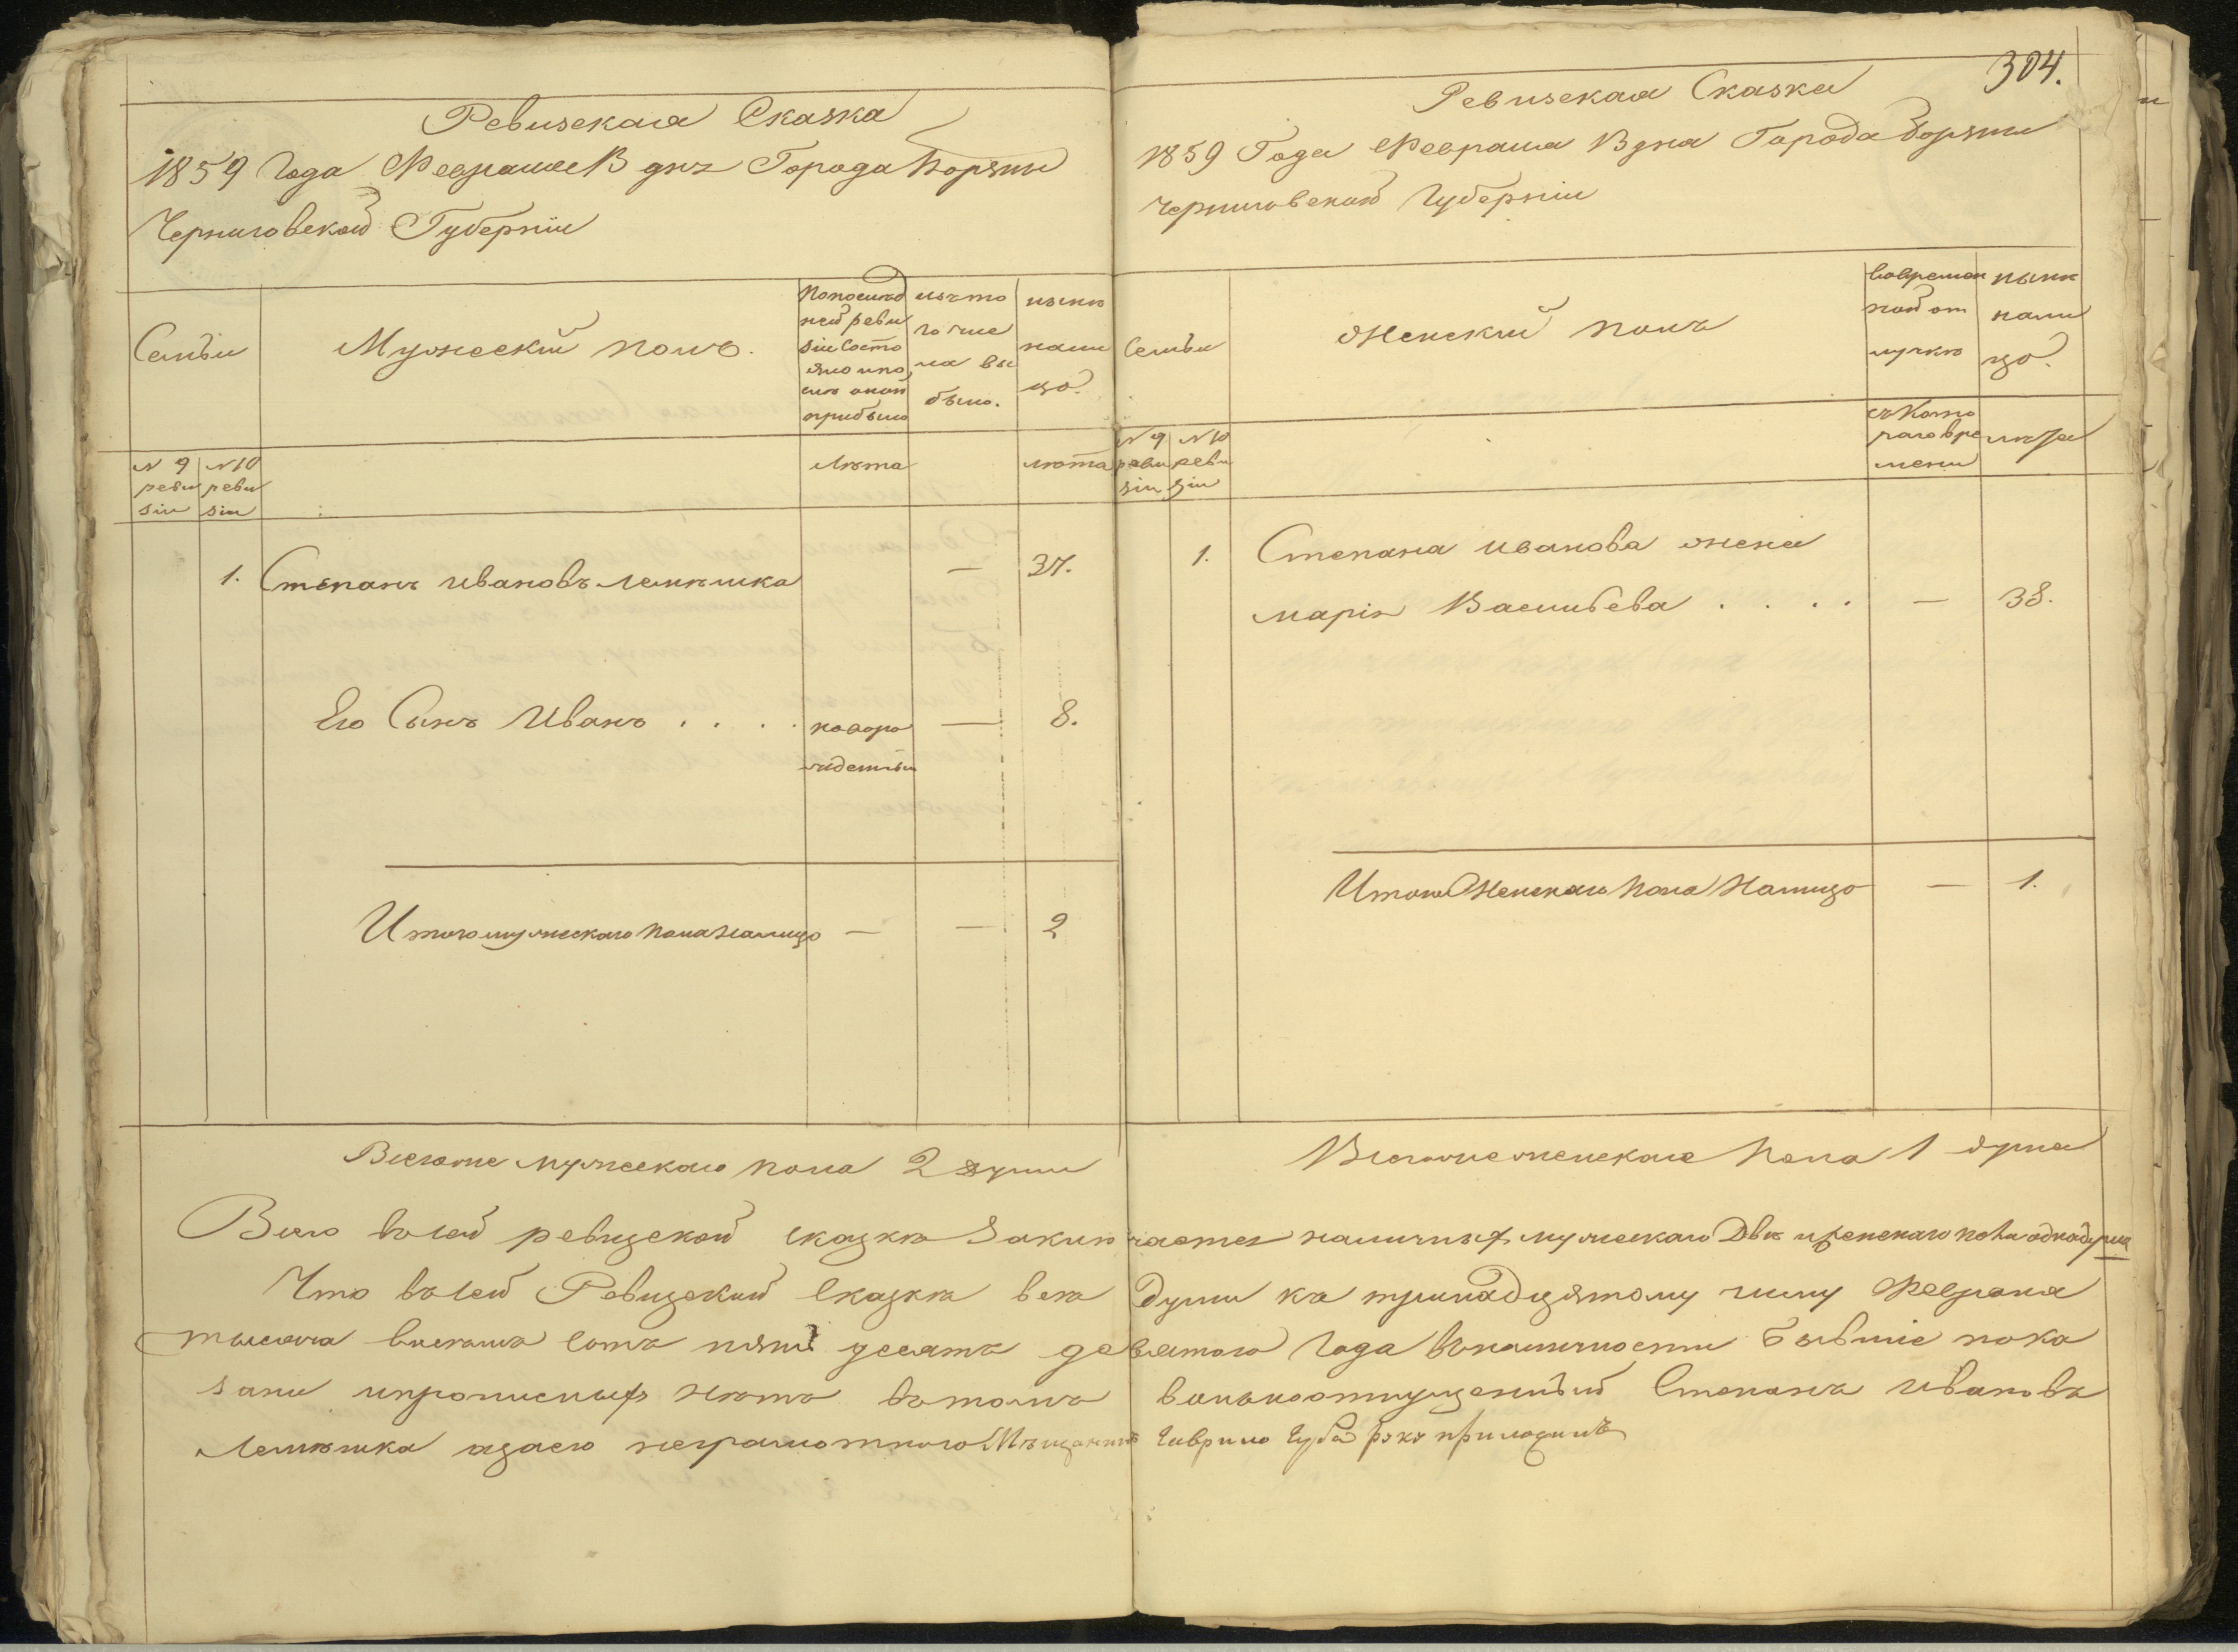 304.
Ревизская Сказка
1859 Года Февраля 13 дня Города Борзны
Черниговской Губерніи
Семьи
Мужескій полъ.
Попослед
ней реви
зіи состо
яло и по
слѣ оной
прибыло
изъ то
го чис
ла вы
было.
нынѣ
нали
цо.
№ 9 реви зіи
№ 10 реви зіи
лѣта
лѣта
1. Степанъ Ивановъ Лемѣшка — 37.
Его Сынъ Иванъ . . . . новоро — 8.
жденный
Итого мужескаго пола налицо — — 2
Всегоже мужескаго пола 2 души
Ревизская Сказка
1859 Года Февраля 13 дня Города Борзны
Черниговской Губерніи
Семьи
Женский полъ
вовремен
ной от
лучкѣ
нынѣ
нали
цо.
№ 9 реви зіи
№ 10 реви зіи
съ кото
раго вре
мени
лѣта
1. Степана Иванова жена
Марія Васильева . . . . — 38.
Итого Женскаго пола Налицо — 1.
Всегоже женскаго пола 1 душа
Всего въ сей ревизской сказкѣ заключается наличныхъ мужескаго Двѣ и женскаго пола одна душа
Что въ сей Ревизской Сказкѣ всѣ души къ тринадцятому числу Февраля
тысяча восемъ сотъ пять десятъ девятого Года въ наличности бывшіе пока
заны и прописныхъ нѣтъ въ томъ вольноотпущенный Степанъ Ивановъ
Лемѣшка а за его неграмотного Мѣщанинъ Гаврило Губа руку приложилъ